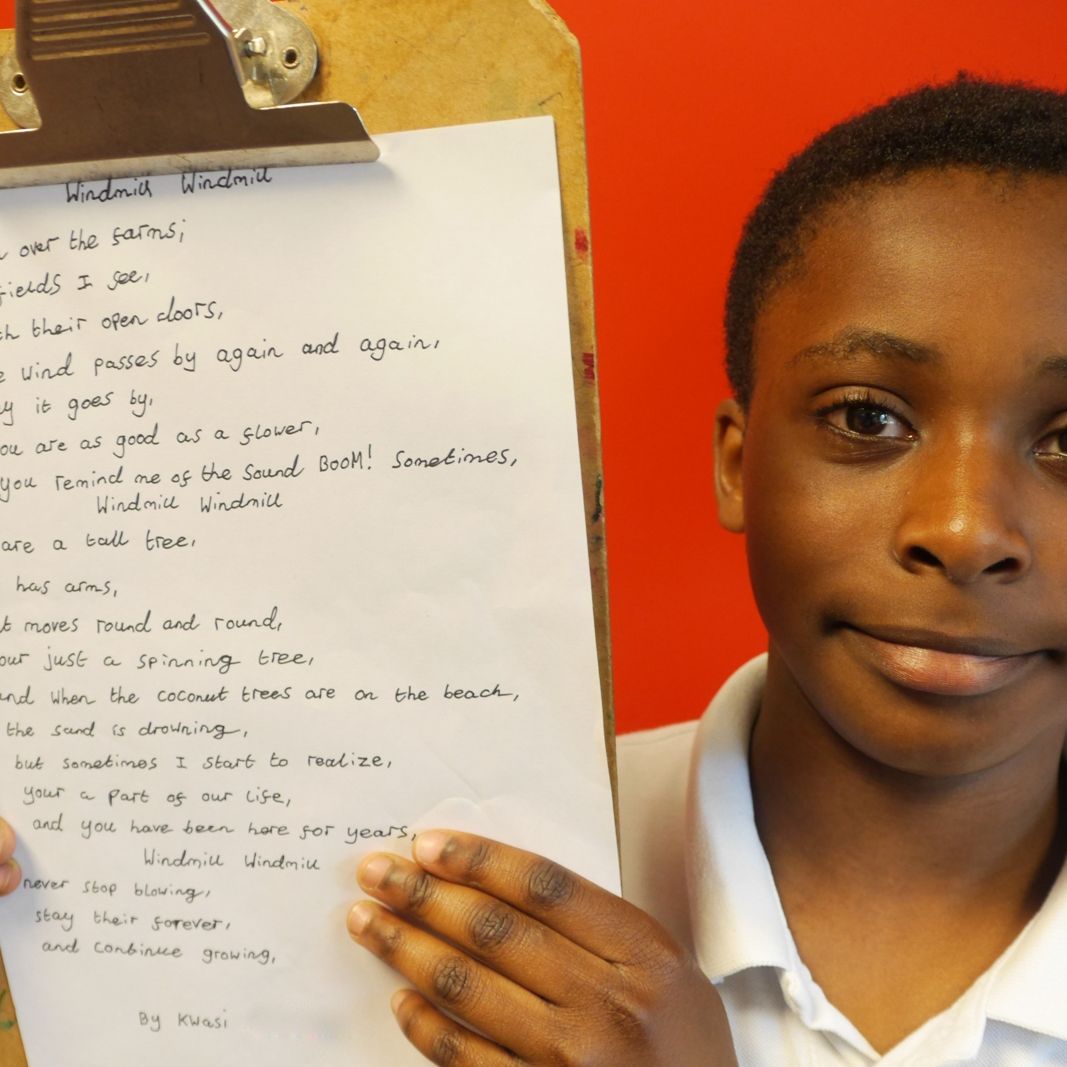 Windmill Windmill
over the farms;
fields I see,
their open doors,
wind passes by again and again,
it goes by,
you are as good as a flower,
you remind me of the Sound BOOM! Sometimes,
Windmill Windmill
are a tall tree,
has arms,
moves round and round,
just a spinning tree,
and when the coconut trees are on the beach,
the sand is drowning,
but sometimes I start to realize,
your a part of our life,
and you have been here for years,
Windmill Windmill
never stop blowing,
stay their forever,
and continue growing,
By Kwasi